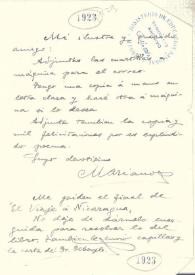 1923
Mi ilustre y querido
amigo:
Adjuntas las cuartillas
máquina para el correo.
Tengo una copia a mano en
letra clara y haré otra a máqui-
na si lo desea.
Adjunta tambien la copia, y
mil felicitaciones por su esplendi-
do poema.
Suyo devotisimo
Mariano
Me piden el final de
"El Viaje a Nicaragua,
No deje de dármelo ense-
guida para resolver lo del
libro,
y
la carta de Dr. Debayle
1923